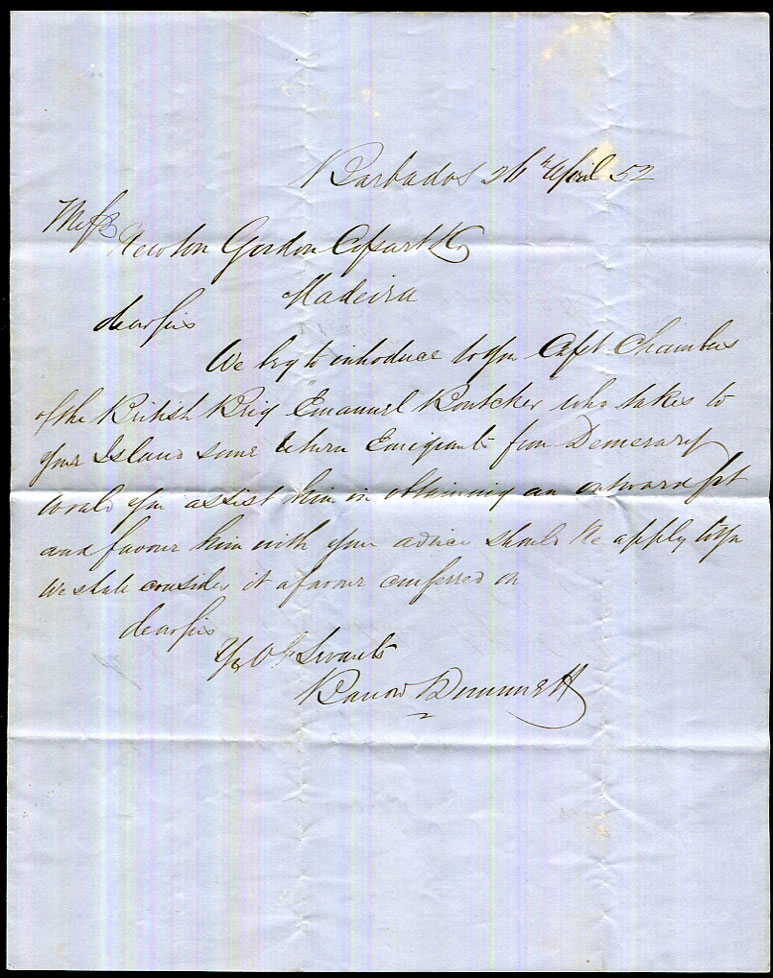 Barbados 26h April 52
Messrs
Newton Gordon Cossart & Co
Madeira
dear sirs
We beg to introduce to you Capt Chambers
of the British Brig "Emanuel Boutcher" who takes to
your Island some return Emigrants from Demerary
would you assist him in obtaining an outward frt
and favour him with your advice should he apply to you
we shall consider it a favour conferred on
dear sirs
Yr Ob Servants
Barrow Dummett